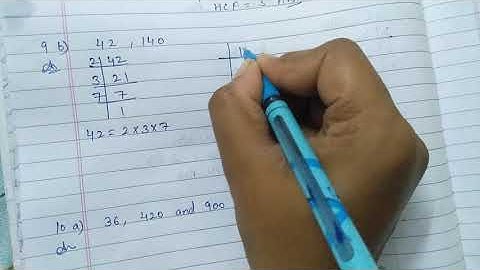 HCF = 3
9 b) 42 , 140
2 42
3 21
7 7
1
1
42 = 2×3×7
10 a) 36, 420 and 900